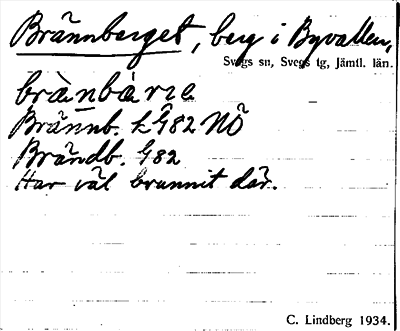 Brännberget, berg i Byvallen,
Svegs sn, Svegs tg, Jämtl. län.
brànbàrıe
Brännb. L G82 NÖ
Brändb. G82
Har väl brunnit där.
C. Lindberg 1934.